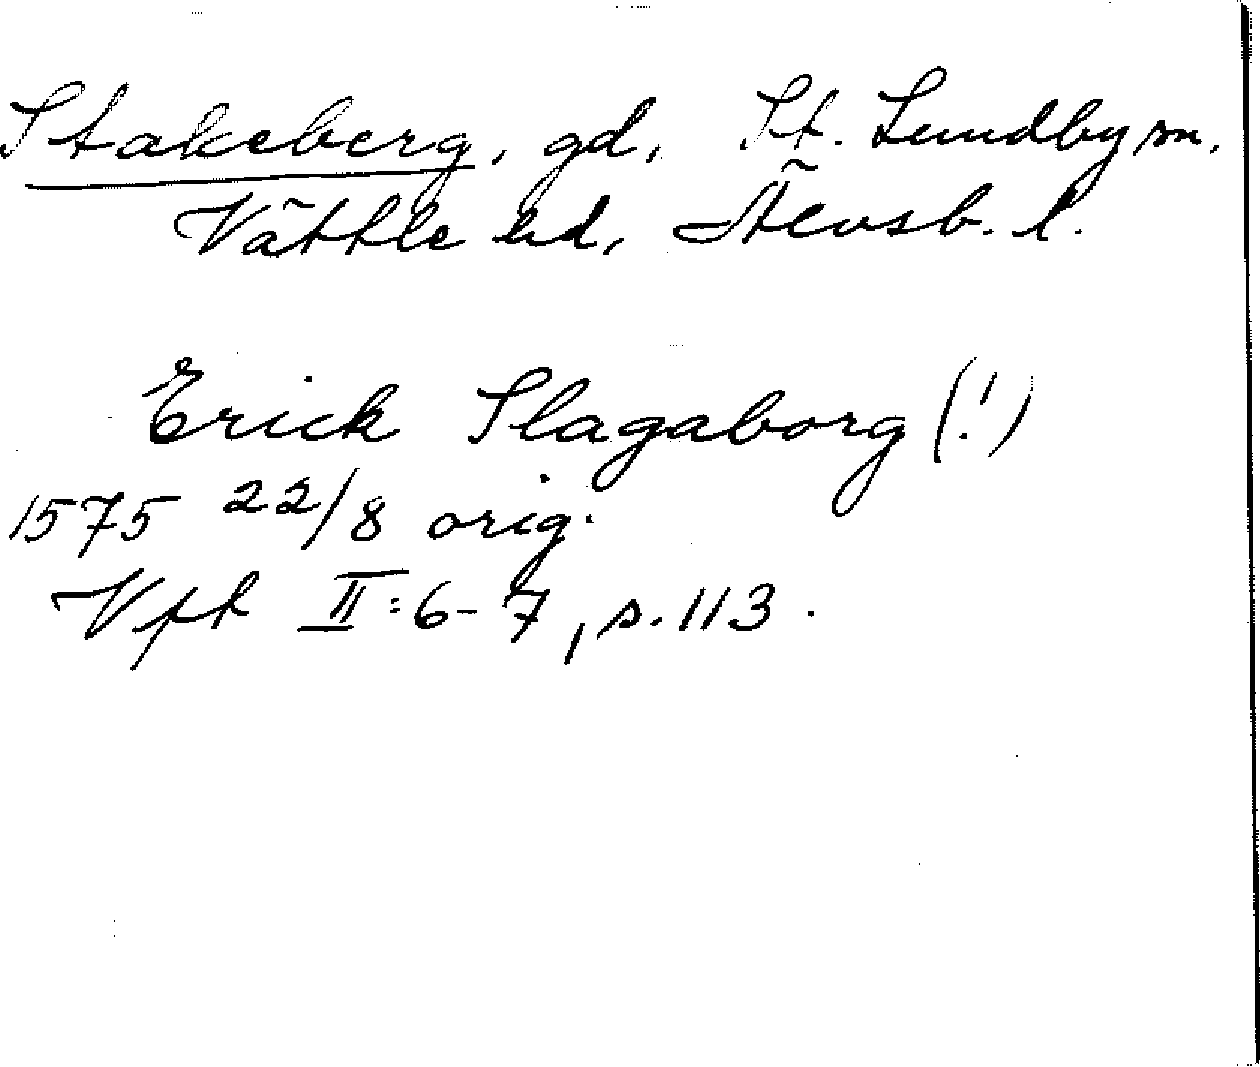 Stakeberg, gd, St. Lundby sn,
Vättle hd, Älvsb. l.
Erick Slagaborg (!)
1575 22/8 orig.
Vfk II:6-7, s. 113.